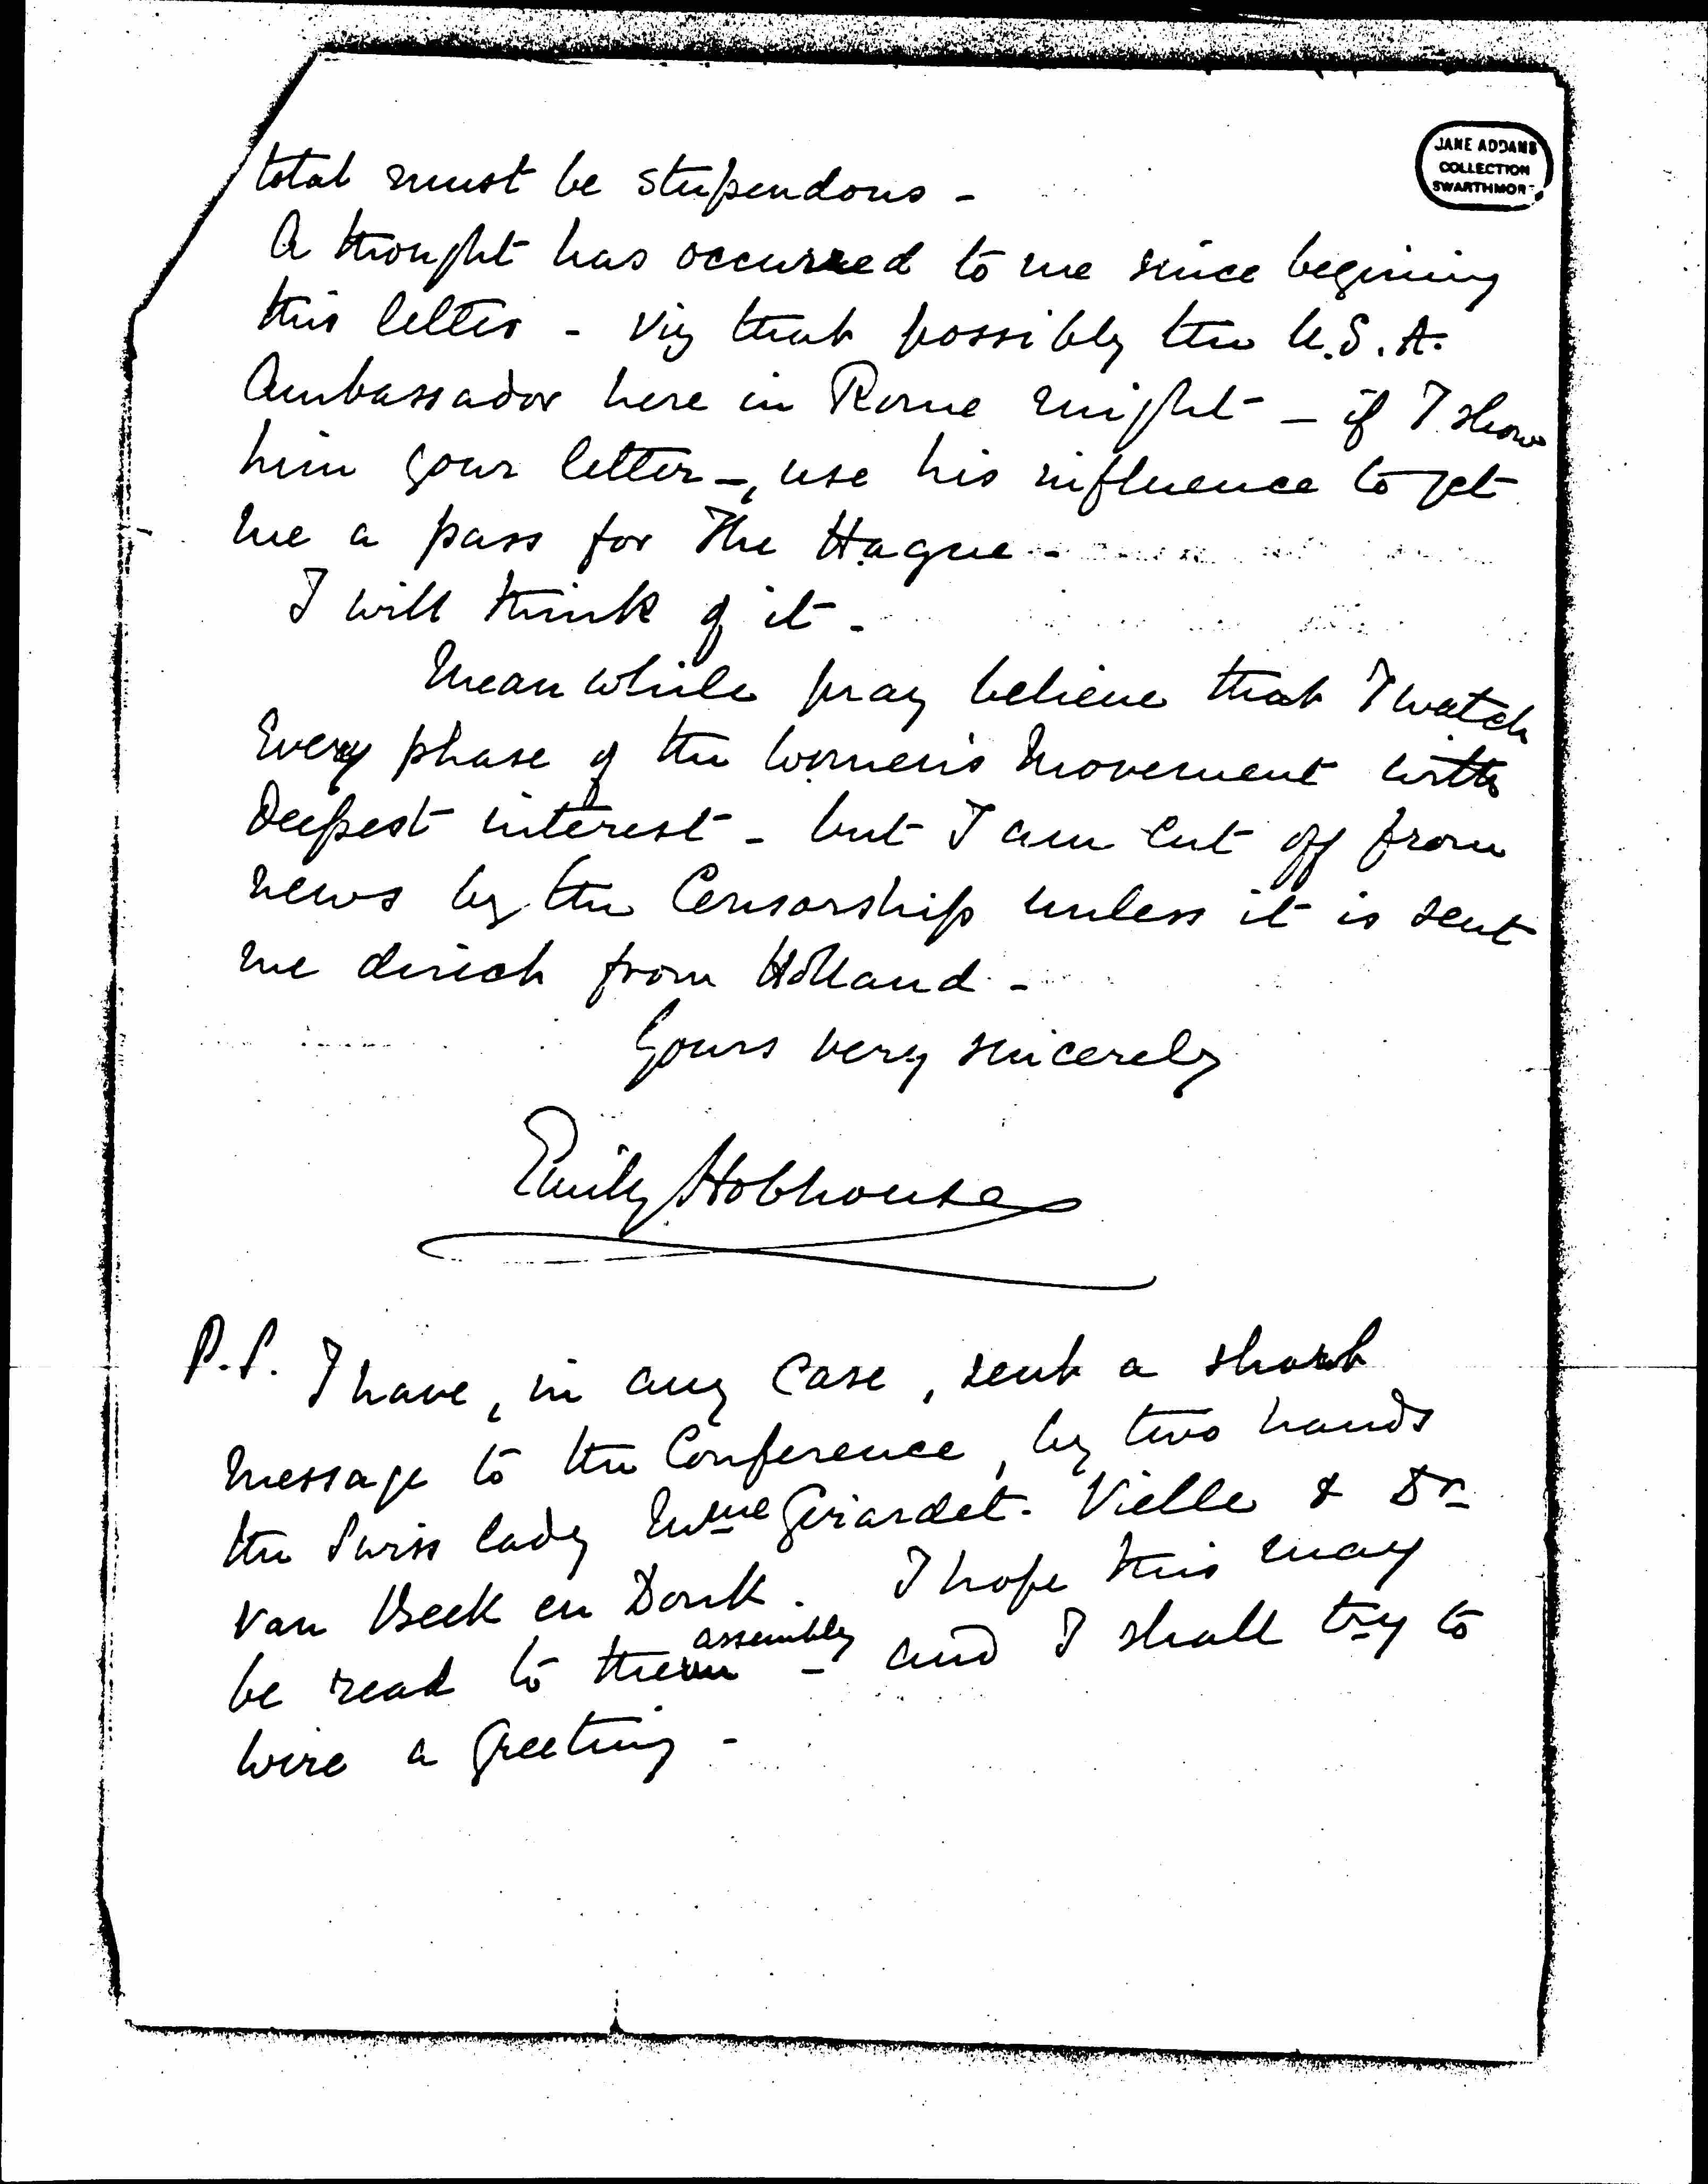 JANE ADDAMS
COLLECTION
SWARTHMOR
total must be stupendous -
A thought has occurred to me since begining
this letter - viz that possibly the U.S.A.
Ambassador here in Rome might - if I show
him your letter -, use his influence to get
me a pass for The Hague -
I will think of it -
Meanwhile pray believe that I watch
Every phase of the Women's Movement with
Deepest interest - but I am cut off from
news by the Censorship unless it is sent
me direct from Holland -
Yours very sincerely
Emily Hobhouse
P.S. I have, in any case, sent a short
message to the Conference, by two hands
the Swiss lady Mme Girardet-Vielle & Dr
van Beek en Donk. I hope this may
be read to the assembly - and I shall try to
wire a greeting -